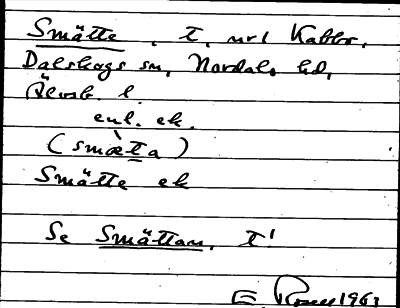 Smätte, t. nr 1 Kabbo,
Dalskogs sn, Nordals hd,
Älvsb. l.
enl. ek.
(smæ̀ta)
Smätte ek
Se Smättan, t'
E. 1963